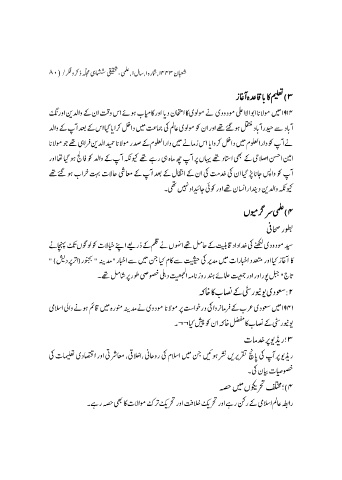 شعبان ۱۴۴۳، شمارہ ۱، سال ۱، علمی، تحقیقی ششماہی مجلہ ذکر و فکر / ( ۸۰
۳) تعلیم کا باقاعدہ آغاز
۱۹۱۴ میں مولانا ابو الاعلی مودودی نے مولوی کا امتحان دیا اور کامیاب ہوئے اس وقت ان کے والدین اورنگ
آباد سے حیدرآباد منتقل ہو گئے تھے اور ان کو مولوی عالم کی جماعت میں داخل کرایا گیا اس کے بعد آپ کے والد
نے آپ کو دارالعلوم میں داخل کروایا اس زمانے میں دارالعلوم کے صدر مولانا حمید الدین فراہی تھے جو مولانا
امین احسن اصلاحی کے بھی استاد تھے یہاں پر آپ چھ ماہ ہی رہے تھے کیونکہ آپ کے والد کو فالج ہو گیا تھا اور
آپ کو واپس جانا پڑا گیا ان کی خدمت کی ان کے انتقال کے بعد آپ کے معاشی حالات بہت خراب ہو گئے تھے
کیونکہ والدین دیندار انسان تھے اور کوئی جائیداد نہیں تھی۔
۴) علمی سرگرمیوں
بطور صحافی
سید مودودی لکھنے کی خداداد قابلیت کے حامل تھے انہوں نے قلم کے ذریعے اپنے خیالات کو لوگوں تک پہنچانے
کا آغاز کیا اور متعدد اخبارات میں مدیر کی حیثیت سے کام کیا جن میں سے اخبار "مدینہ" بجنور (اتر پردیش) "
تاج" جبل پور اور اور جمعیت علمائے ہند روزنامہ الجمعیت دہلی خصوصی طور پر شامل تھے۔
۲: سعودی یونیورسٹی کے نصاب کا خاکہ
۱۹۶۱ میں سعودی عرب کے فرمانروا کی درخواست پر مولانا مودودی نے مدینہ منورہ میں قائم ہونے والی اسلامی
یونیورسٹی کے نصاب کا مفصل خاکہ ان کو پیش کیا۔
۳: ریڈیو پر خدمات
ریڈیو پر آپ کی پانچ تقریریں نشر ہوئیں جن میں اسلام کی روحانی، اخلاقی، معاشرتی اور اقتصادی تعلیمات کی
خصوصیات بیان کی۔
۴): مختلف تحریکوں میں حصہ
رابطہ عالم اسلامی کے رکن رہے اور تحریک خلافت اور تحریک ترک موالات کا بھی حصہ رہے۔